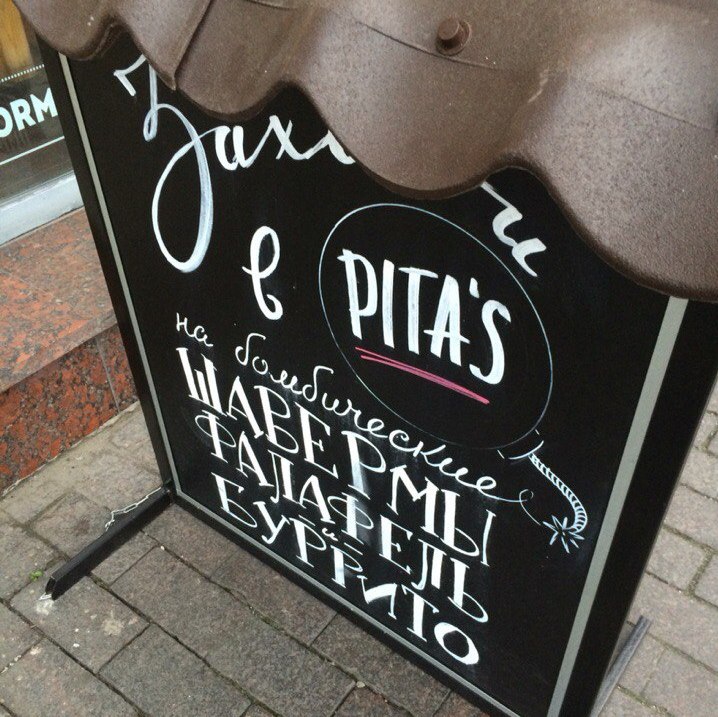 ORM
Заходи
в PITA'S
на бомбические
ШАВЕРМЫ
ФАЛАФЕЛЬ
и
БУРРИТО